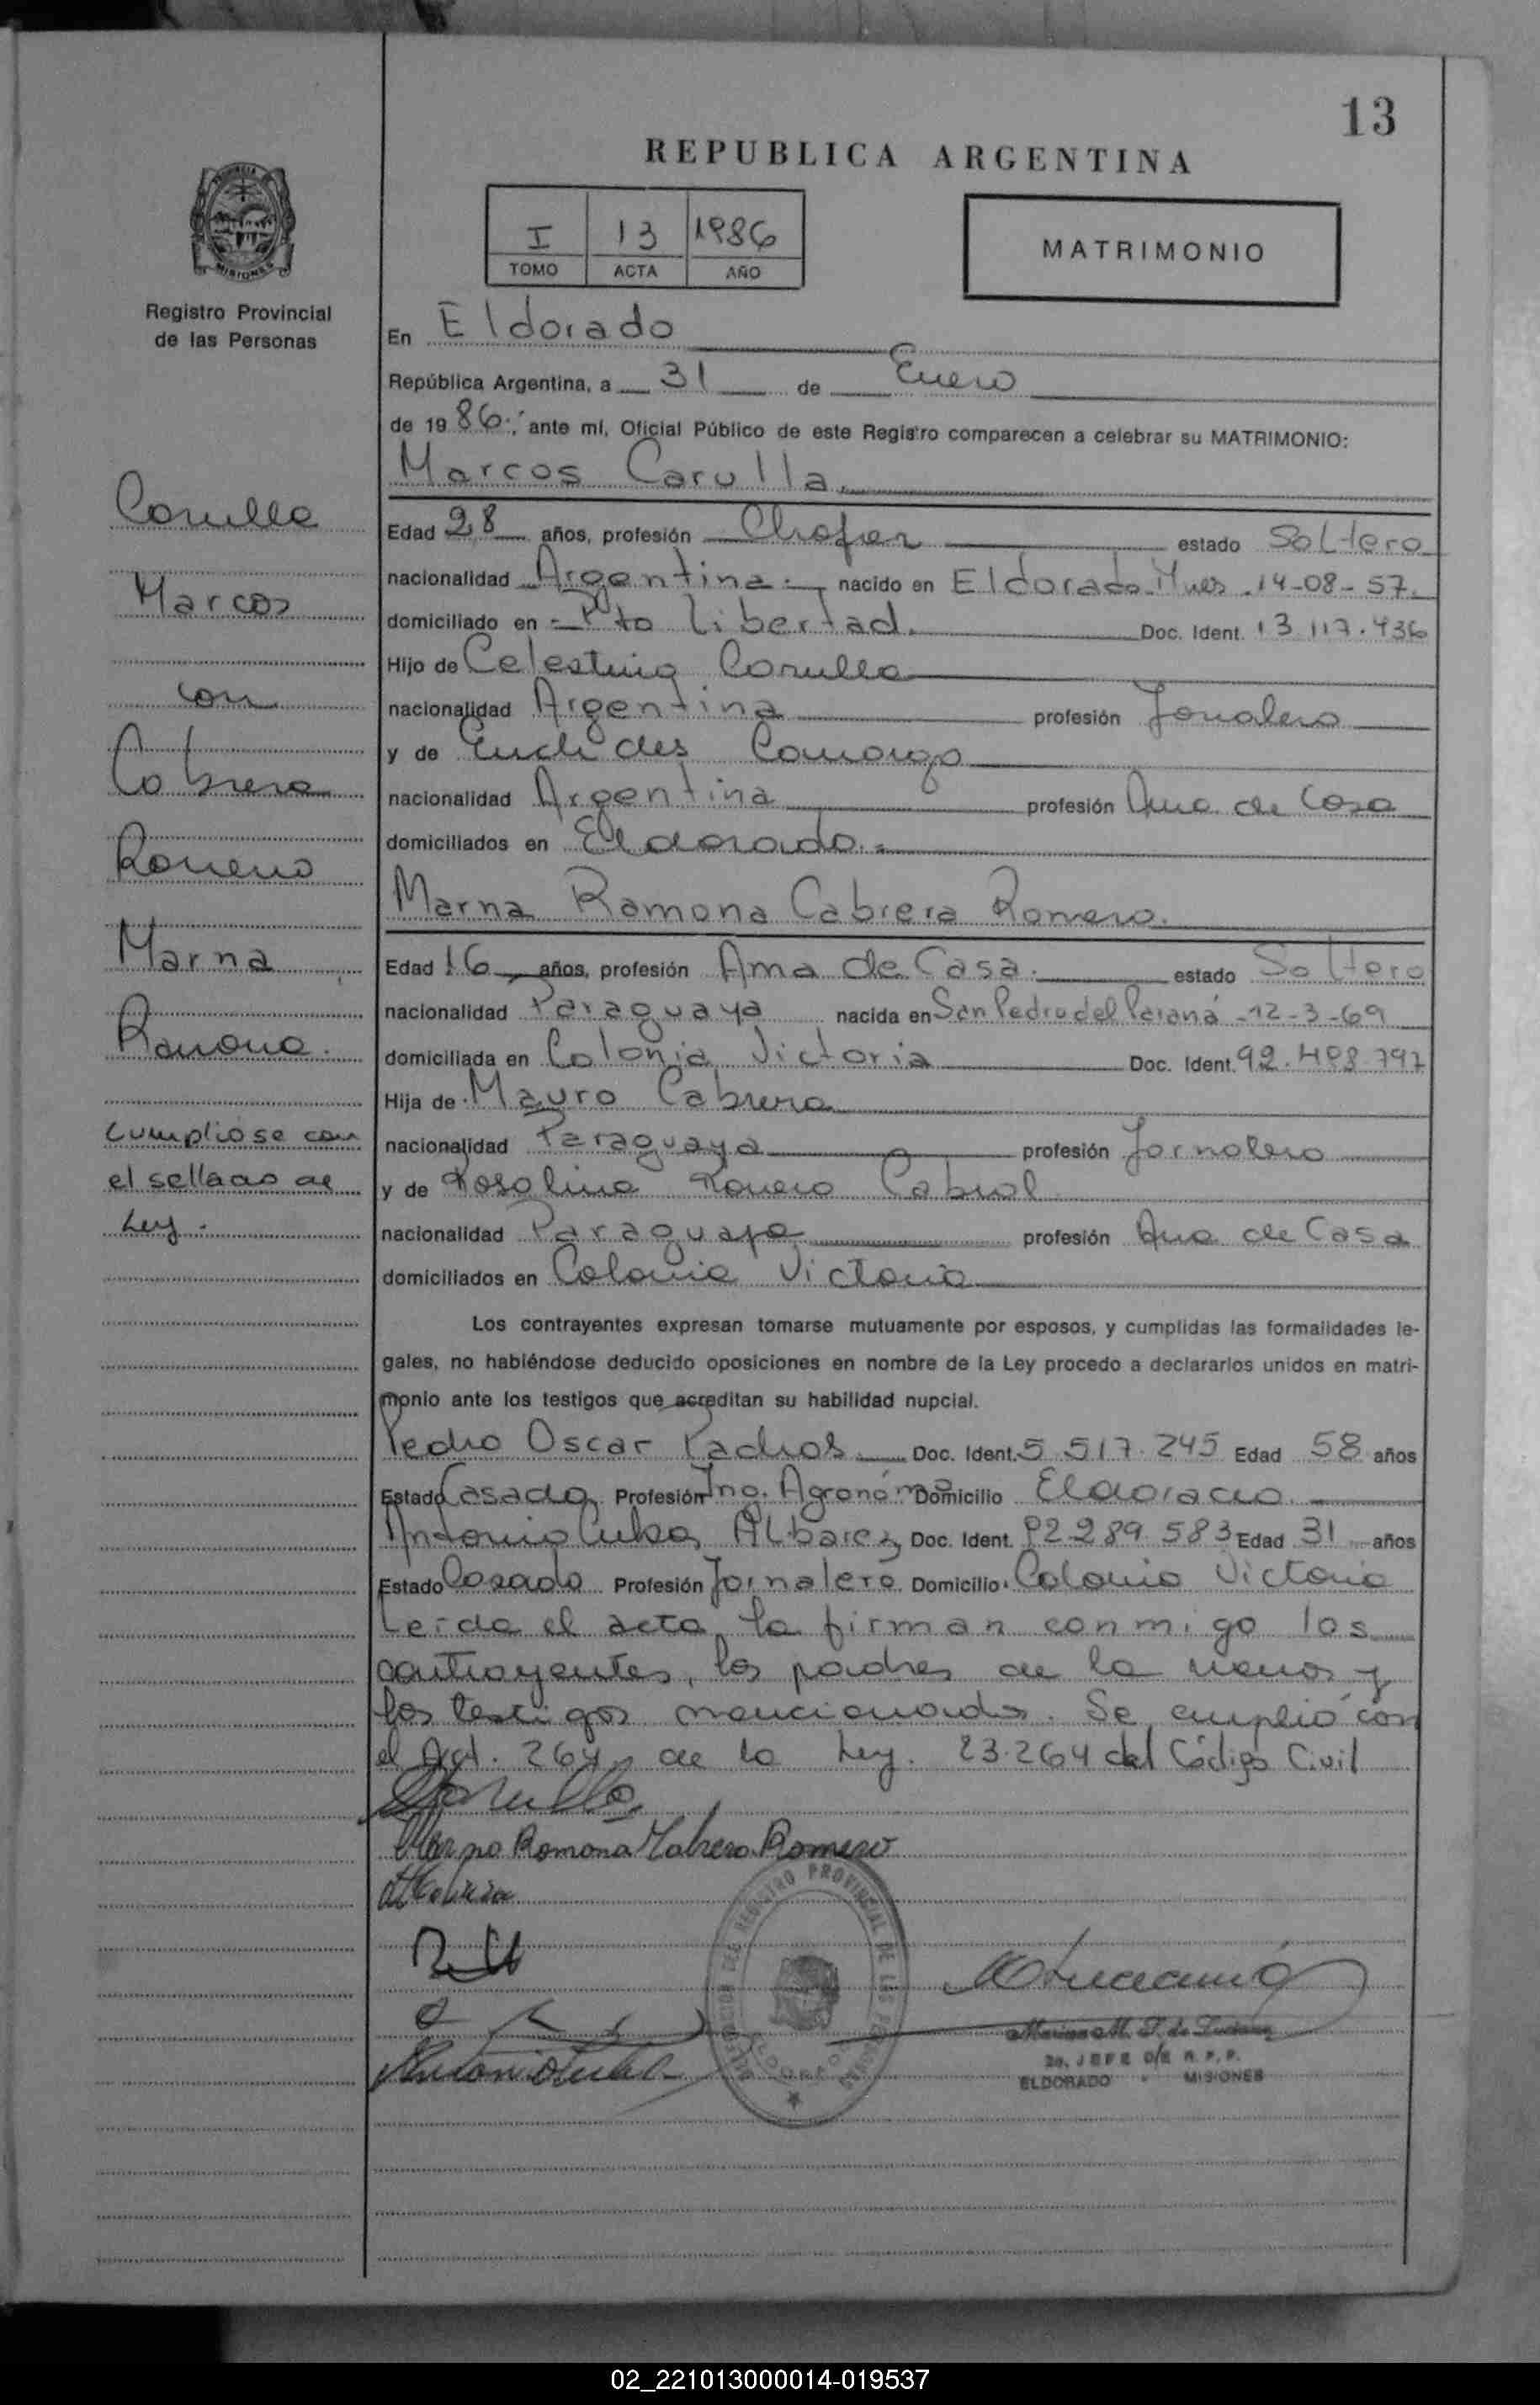 13
REPUBLICA ARGENTINA
I 13 1986
TOMO ACTA AÑO
MATRIMONIO
PROVINCIA DE
MISIONES
Registro Provincial
de las Personas
En Eldorado
República Argentina, a 31 de Enero
de 1986.; ante mí, Oficial Público de este Registro comparecen a celebrar su MATRIMONIO:
Marcos Carulla.
Edad 28 años, profesión Chofer estado Soltero
nacionalidad Argentina.- nacido en Eldorado-Mnes. 14-08-57.
domiciliado en - Pto Libertad. Doc. Ident. 13.117.436
Hijo de Celestino Carulla
nacionalidad Argentina profesión Jornalero
y de Euclides Camargo
nacionalidad Argentina profesión Ama de Casa
domiciliados en Eldorado.-
Marna Ramona Cabrera Romero.
Edad 16 años, profesión Ama de Casa. estado Soltero
nacionalidad Paraguaya nacida en San Pedro del Paraná -12-3-69
domiciliada en Colonia Victoria Doc. Ident. 92.493.797
Hija de Mauro Cabrera
nacionalidad Paraguaya profesión Jornalero
y de Rosalina Romero Cabral
nacionalidad Paraguaya profesión Ama de Casa
domiciliados en Colonia Victoria
Los contrayentes expresan tomarse mutuamente por esposos, y cumplidas las formalidades le-
gales, no habiéndose deducido oposiciones en nombre de la Ley procedo a declararlos unidos en matri-
monio ante los testigos que acreditan su habilidad nupcial.
Pedro Oscar Padros Doc. Ident. 5.517.245 Edad 58 años
Estado Casado Profesión Ing. Agronómo Domicilio Eldorado.
Antonio Cuba Albarez Doc. Ident. 92.289.583 Edad 31 años
Estado Casado Profesión Jornalero Domicilio Colonia Victoria
Leída el acta, la firman conmigo los
contrayentes, los padres de la menor y
los testigos mencionados. Se cumplió con
el Art. 264 de la Ley. 23.264 del Código Civil
Carulla
Marna Ramona Cabrera Romero
Antonio Cuba
2a. JEFE D/E R. P. P.
ELDORADO - MISIONES
Carulla
Marcos
con
Cabrera
Romero
Marna
Ramona.
Cumpliose con
el sellado de
Ley.
02_221013000014-019537